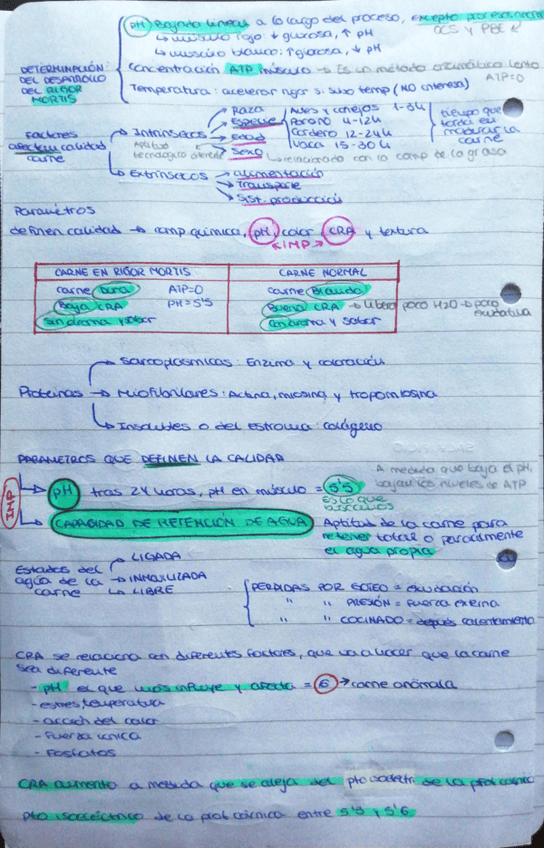 pH) Bajada lineal a lo largo del proceso, excepto procesos anormales
DCS y PSE
↳ músculo rojo ↓ glucosa, ↑ pH
↳ músculo blanco: ↑ glucosa, ↓ pH
DETERMINACIÓN DEL DESARROLLO DEL RIGOR MORTIS
Concentración ATP músculo → Es un método enzimático lento
ATP=0
Temperatura: acelerar rigor si subo temp (NO interesa)
Factores afectan calidad carne
→ Intrínsecos
Aptitud tecnológica diferente
→ Raza
→ Especie
→ Edad
→ Sexo
Aves y conejos 1-3h
Porcino 4-12h
Cordero 12-24h
Vaca 15-30h
tiempo que tarda en madurar la carne
↳ relacionado con la comp de la grasa
→ Extrínsecos
→ Alimentación
→ Transporte
→ Sist. producción
Parámetros
definen calidad → comp química, pH, color, CRA y textura
IMP
CARNE EN RIGOR MORTIS
CARNE NORMAL
carne dura ATP=0
carne blanda
Baja CRA pH=5'5
Buena CRA → libera poco H2O → poco exudativa
Sin aroma y sabor
Con aroma y sabor
→ Sarcoplásmicas: Enzima y coloración
Proteínas → Miofibrilares: Actina, miosina y tropomiosina
→ Insolubles o del estroma: colágeno
PARÁMETROS QUE DEFINEN LA CALIDAD
IMP
pH tras 24 horas, pH en músculo = 5'5
es lo que buscamos
A medida que baja el pH, bajan los niveles de ATP
CAPACIDAD DE RETENCIÓN DE AGUA
Aptitud de la carne para
retener total o parcialmente
el agua propia
Estados del agua de la carne
→ LIGADA
→ INMOVILIZADA
→ LIBRE
PERDIDAS POR GOTEO = exudación
" " PRESIÓN = Fuerza externa
" " COCINADO = después calentamiento
CRA se relaciona con diferentes factores, que va a hacer que la carne
sea diferente
- pH el que más influye y afecta = 6 → carne anómala
- estrés, temperatura
- acción del calor
- Fuerza iónica
- Fosfatos
CRA aumenta a medida que se aleja del pto isoeléctri de la prot cárnica
Pto isoeléctrico de la prot cárnica entre 5'3 y 5'6